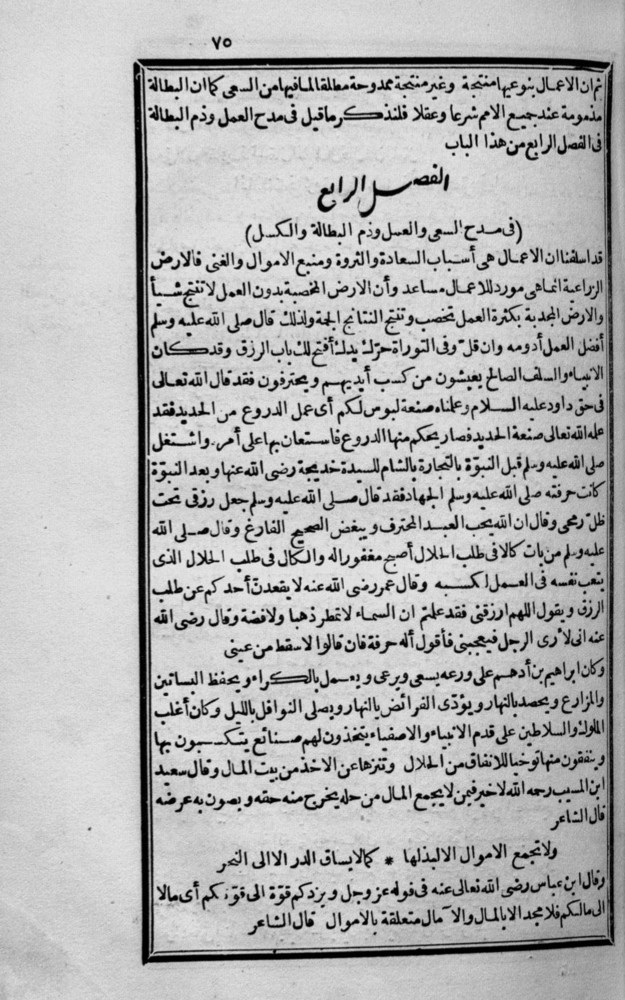 ٧٥
ثم ان الاعمال بنوعيها منتجة وغير منتجة ممدوحة مطلقا لما فيها من السعى كما ان البطالة
مذمومة عند جميع الامم شرعا وعقلا فلنذكر ما قيل فى مدح العمل وذم البطالة
فى الفصل الرابع من هذا الباب
الفصل الرابع
(فى مدح السعى والعمل وذم البطالة والكسل)
قد اسلفنا ان الاعمال هى أسباب السعادة والثروة ومنبع الاموال والغنى فالارض
الزراعية انما هى مورد للاعمال مساعد وأن الارض المخصبة بدون العمل لا تنتج شيأ
والارض المجدبة بكثرة العمل تخصب وتنتج النتائج الجمة ولذلك قال صلى الله عليه وسلم
أفضل العمل أدومه وان قل وفى التوراة حرّك يدك أفتح لك باب الرزق وقد كان
الانبياء والسلف الصالح يعيشون من كسب أيديهم ويحترفون فقد قال الله تعالى
فى حق داود عليه السلام وعلمناه صنعة لبوس لكم أى عمل الدروع من الحديد فقد
علمه الله تعالى صنعة الحديد فصار يحكم منها الدروع فاستعان بها على أمره واشتغل
صلى الله عليه وسلم قبل النبوّة بالتجارة بالشام للسيدة خديجة رضى الله عنها وبعد النبوّة
كانت حرفته صلى الله عليه وسلم الجهاد فقد قال صلى الله عليه وسلم جعل رزقى تحت
ظل رمحى وقال ان الله يحب العبد المحترف ويبغض الصحيح الفارغ وقال صلى الله
عليه وسلم من بات كالا فى طلب الحلال أصبح مغفورا له والكال فى طلب الحلال الذى
يتعب نفسه فى العمل لكسبه وقال عمر رضى الله عنه لا يقعدنّ أحدكم عن طلب
الرزق ويقول اللهم ارزقنى فقد علمتم ان السماء لا تمطر ذهبا ولا فضة وقال رضى الله
عنه انى لأرى الرجل فيعجبنى فأقول أله حرفة فان قالوا لا سقط من عينى
وكان ابراهيم بن أدهم على ورعه يسعى ويرعى ويعمل بالكراء ويحفظ البساتين
والمزارع ويحصد بالنهار ويؤدّى الفرائض بالنهار ويصلى النوافل بالليل وكان أغلب
الملوك والسلاطين على قدم الانبياء والاصفياء يتخذون لهم صنائع يتكسبون بها
وينفقون منها توخيا للانفاق من الحلال وتنزها عن الاخذ من بيت المال وقال سعيد
ابن المسيب رحمه الله لا خير فيمن لا يجمع المال من حله يخرج منه حقه ويصون به عرضه
قال الشاعر
ولا تجمع الاموال الا لبذلها * كما لا يساق الدر الا الى النحر
وقال ابن عباس رضى الله تعالى عنه فى قوله عز وجل ويزدكم قوّة الى قوّتكم أى مالا
الى مالكم فلا مجد الا بالمال والآمال متعلقة بالاموال قال الشاعر